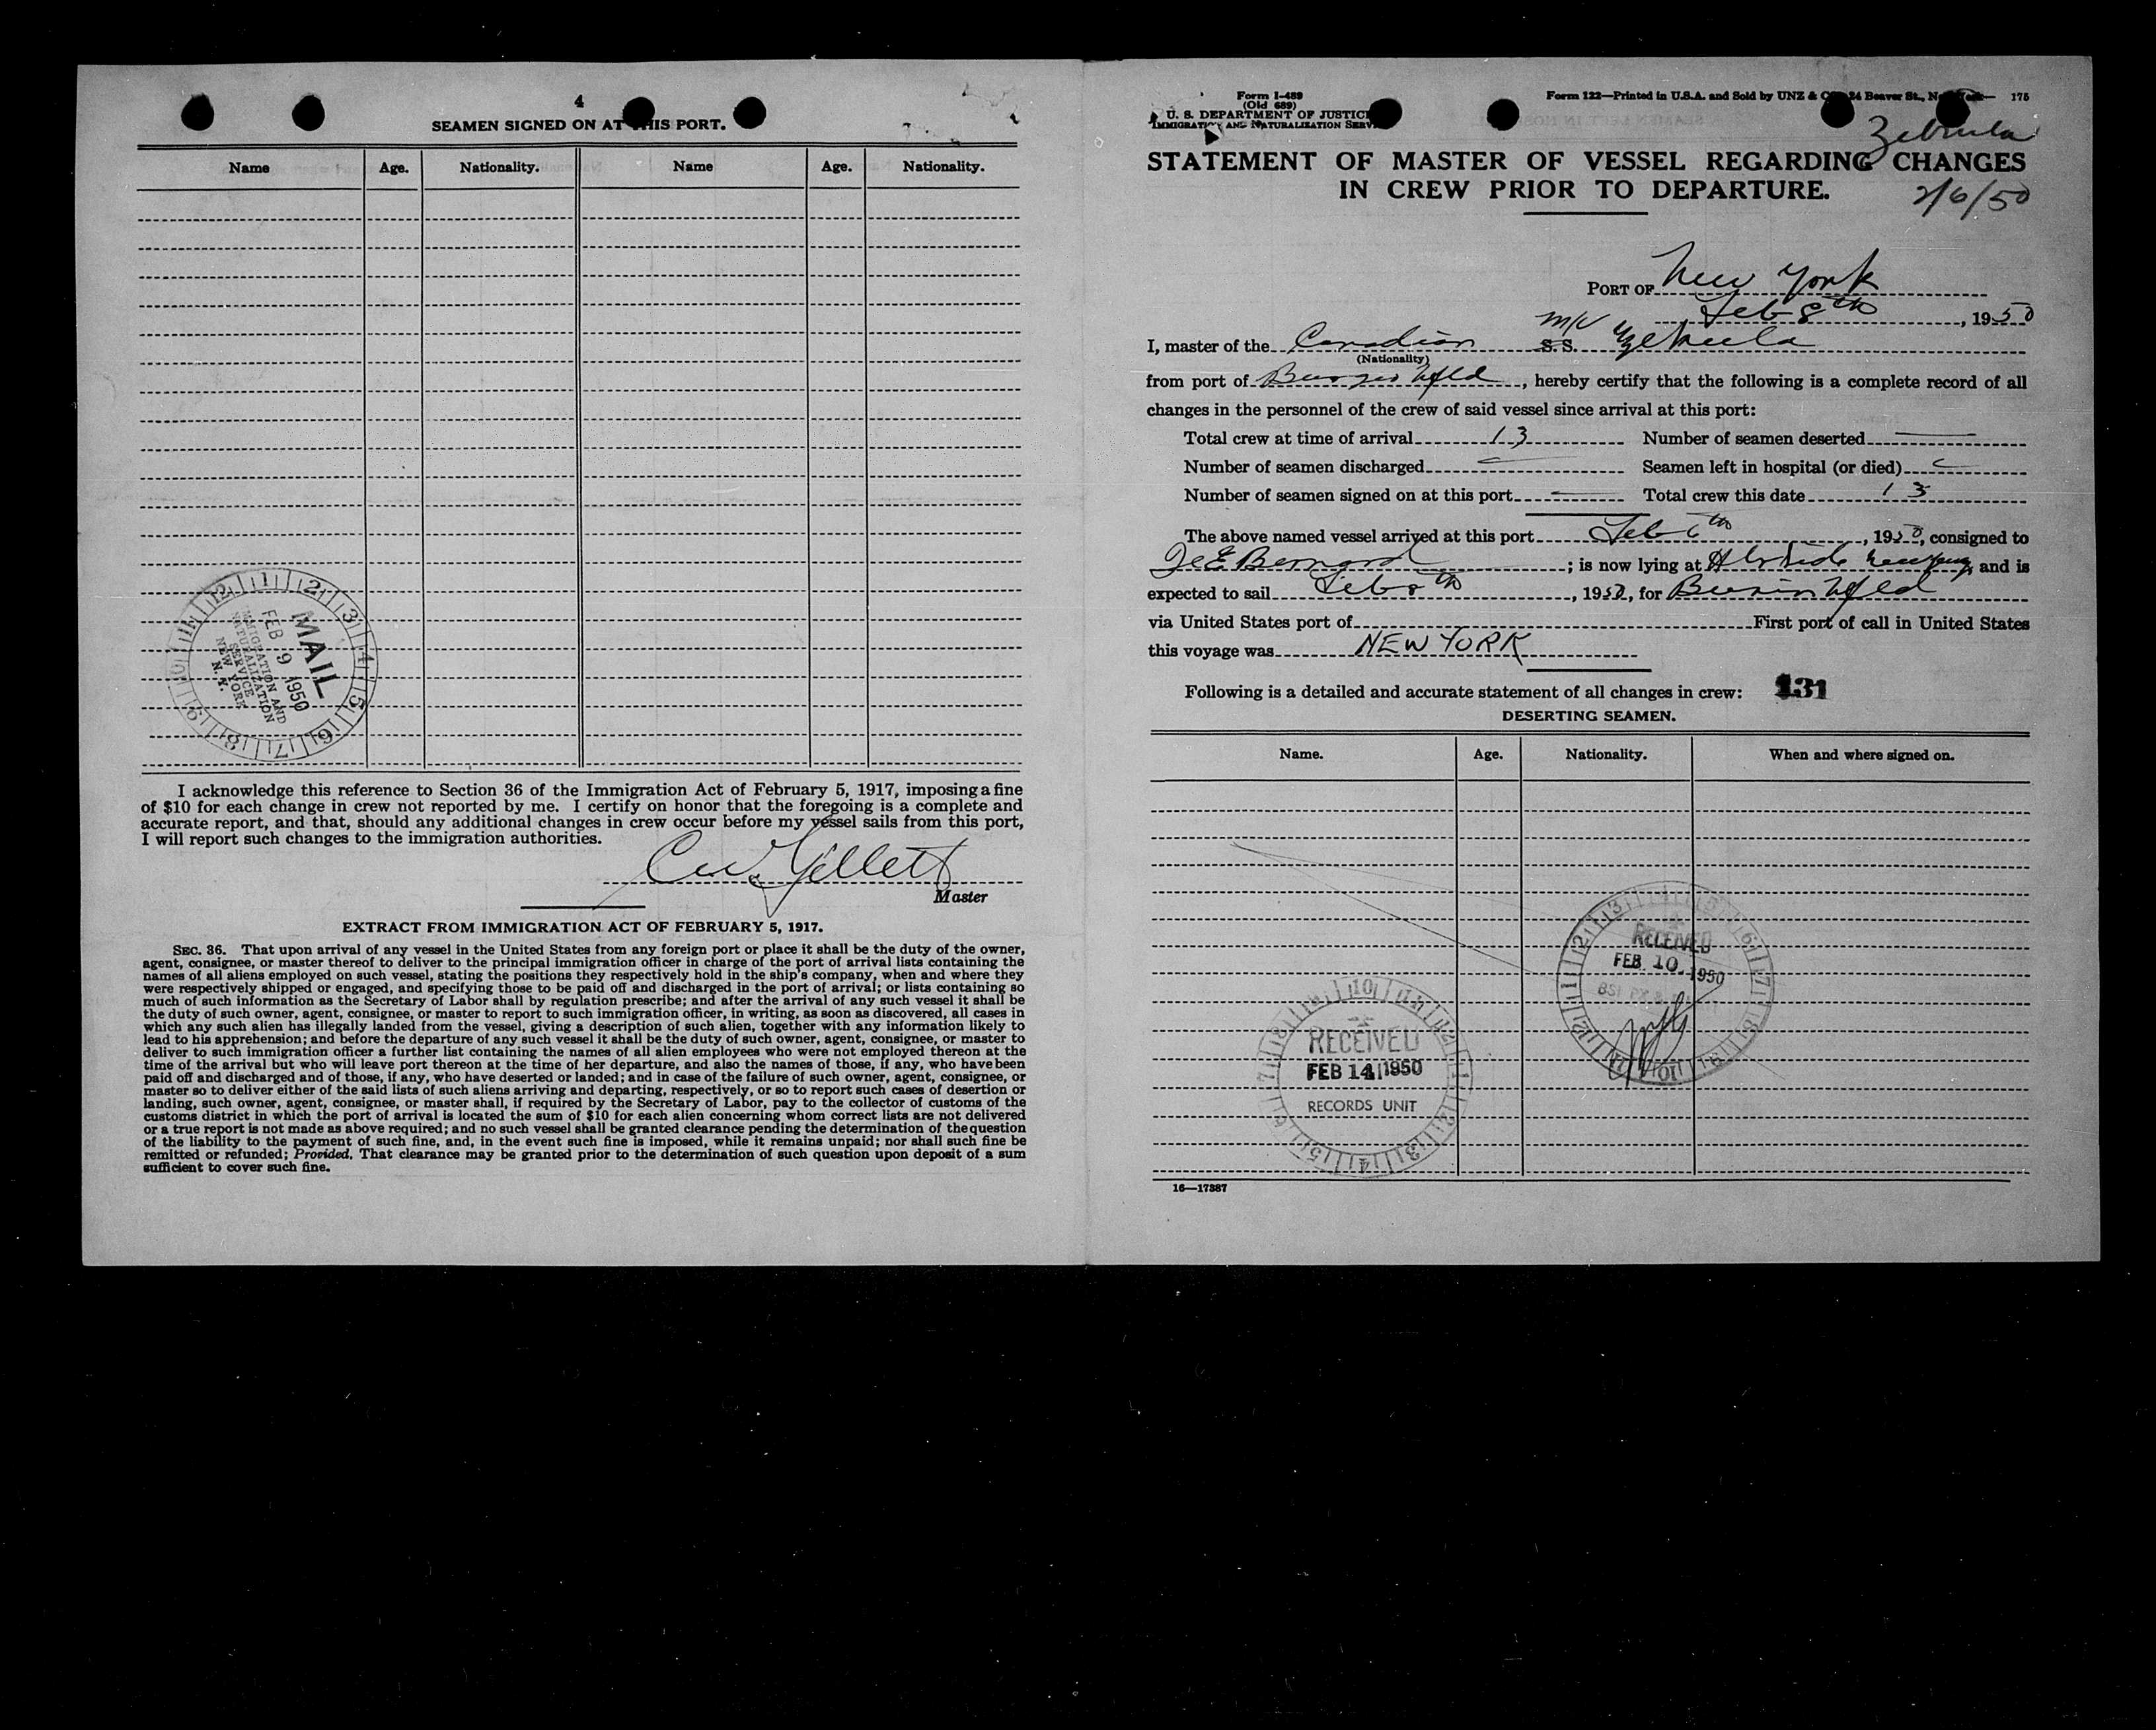 4
SEAMEN SIGNED ON AT THIS PORT.
Name Age. Nationality. Name Age. Nationality.
MAIL
FEB 9 1950
IMMIGRATION AND
NATURALIZATION
SERVICE
NEW YORK
N. Y.
I acknowledge this reference to Section 36 of the Immigration Act of February 5, 1917, imposing a fine
of $10 for each change in crew not reported by me. I certify on honor that the foregoing is a complete and
accurate report, and that, should any additional changes in crew occur before my vessel sails from this port,
I will report such changes to the immigration authorities.
Gillett
Master
EXTRACT FROM IMMIGRATION ACT OF FEBRUARY 5, 1917.
SEC. 36. That upon arrival of any vessel in the United States from any foreign port or place it shall be the duty of the owner,
agent, consignee, or master thereof to deliver to the principal immigration officer in charge of the port of arrival lists containing the
names of all aliens employed on such vessel, stating the positions they respectively hold in the ship's company, when and where they
were respectively shipped or engaged, and specifying those to be paid off and discharged in the port of arrival; or lists containing so
much of such information as the Secretary of Labor shall by regulation prescribe; and after the arrival of any such vessel it shall be
the duty of such owner, agent, consignee, or master to report to such immigration officer, in writing, as soon as discovered, all cases in
which any such alien has illegally landed from the vessel, giving a description of such alien, together with any information likely to
lead to his apprehension; and before the departure of any such vessel it shall be the duty of such owner, agent, consignee, or master to
deliver to such immigration officer a further list containing the names of all alien employees who were not employed thereon at the
time of the arrival but who will leave port thereon at the time of her departure, and also the names of those, if any, who have been
paid off and discharged and of those, if any, who have deserted or landed; and in case of the failure of such owner, agent, consignee, or
master so to deliver either of the said lists of such aliens arriving and departing, respectively, or so to report such cases of desertion or
landing, such owner, agent, consignee, or master shall, if required by the Secretary of Labor, pay to the collector of customs of the
customs district in which the port of arrival is located the sum of $10 for each alien concerning whom correct lists are not delivered
or a true report is not made as above required; and no such vessel shall be granted clearance pending the determination of the question
of the liability to the payment of such fine, and, in the event such fine is imposed, while it remains unpaid; nor shall such fine be
remitted or refunded; Provided, That clearance may be granted prior to the determination of such question upon deposit of a sum
sufficient to cover such fine.
Form I-489
(Old 689)
U. S. DEPARTMENT OF JUSTICE
IMMIGRATION AND NATURALIZATION SERV
Form 122—Printed in U.S.A. and Sold by UNZ & CO., 24 Beaver St., New York— 175
Zebrula
STATEMENT OF MASTER OF VESSEL REGARDING CHANGES
IN CREW PRIOR TO DEPARTURE.
2/6/50
PORT OF New York
Feb 8th, 1950
I, master of the Canadian M/V S.S. Zebrula
(Nationality)
from port of Nfld, hereby certify that the following is a complete record of all
changes in the personnel of the crew of said vessel since arrival at this port:
Total crew at time of arrival 13 Number of seamen deserted —
Number of seamen discharged Seamen left in hospital (or died)
Number of seamen signed on at this port — Total crew this date 13
The above named vessel arrived at this port Feb 6th, 1950, consigned to
Bernard; is now lying at and is
expected to sail Feb 8th, 1950, for Burin Nfld
via United States port of First port of call in United States
this voyage was NEW YORK
Following is a detailed and accurate statement of all changes in crew: 131
DESERTING SEAMEN.
Name. Age. Nationality. When and where signed on.
RECEIVED
FEB 10 1950
RECEIVED
FEB 14 1950
RECORDS UNIT
16—17387